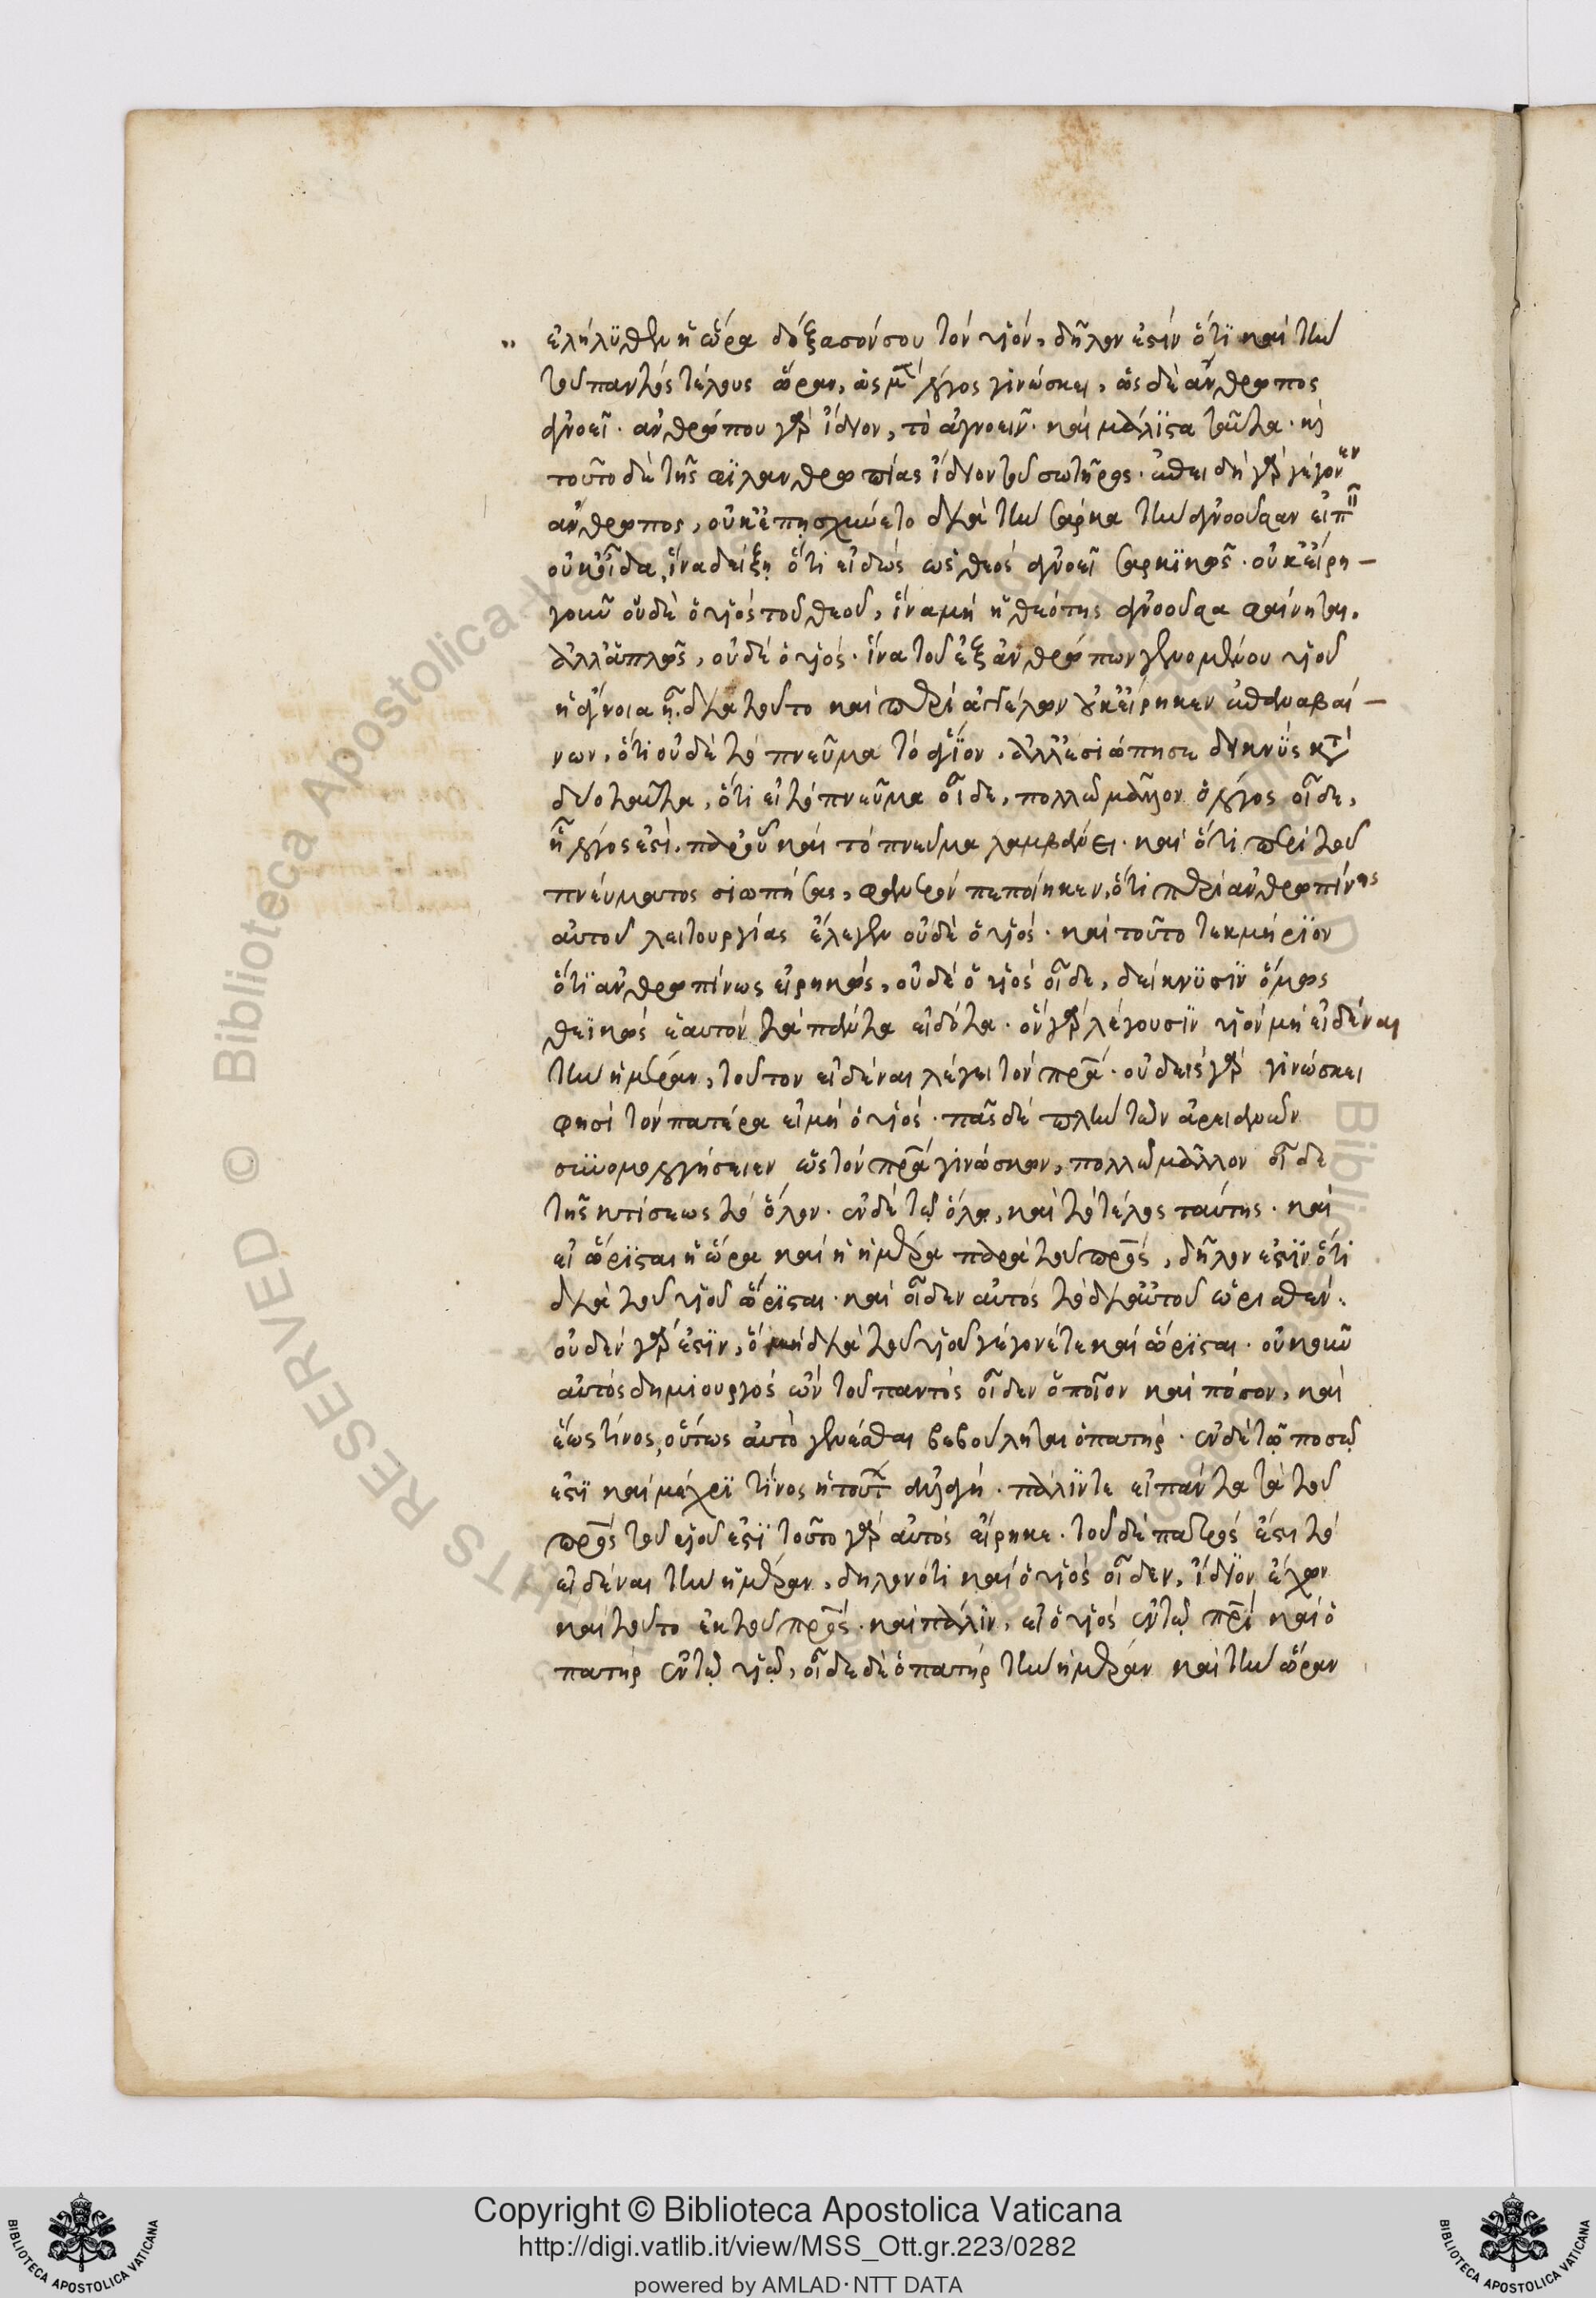 ἐλήλϋθεν ἡ ὥρα δόξασόν σου τὸν υἱόν, δῆλον ἐστὶν ὅτϊ καὶ τὴν
τοῦ παντὸς τέλους ὥραν, ὡς μὲν λόγος γινώσκει, ὡς δὲ ἄνθρωπος
ἀγνοεῖ. ἀνθρώπου γὰρ ἴδιον, τὸ ἀγνοεῖν. καὶ μάλϊστα ταῦτα. καὶ
τοῦτο δὲ τῆς φϊλανθρωπίας ἴδιον τοῦ σωτῆρος. ἐπειδὴ γὰρ γέγονεν
ἄνθρωπος, οὐκ ἐπησχύνετο διὰ τὴν σάρκα τὴν ἀγνοοῦσαν εἰπεῖν
οὐκ οἶδα, ἵνα δείξη ὅτι εἰδὼς ὡς θεὸς ἀγνοεῖ σαρκϊκῶς. οὐκ εἴρη-
γοῦν οὐδὲ ὁ υἱὸς τοῦ θεοῦ, ἵνα μὴ ἡ θεότης ἀγνοοῦσα φαίνηται.
ἀλλ' ἁπλῶς, οὐδὲ ὁ υἱός. ἵνα τοῦ ἐξ ἀνθρώπων γενομένου υἱοῦ
ἡ ἄγνοια ᾖ. διὰ τοῦτο καὶ περὶ ἀγγέλων οὐκ εἴρηκεν ἐπαναβαί-
νων, ὅτι οὐδὲ τὸ πνεῦμα τὸ ἅγϊον. ἀλλ' ἐσιώπησε δεικνὺς κατὰ
δύο ταῦτα, ὅτι εἰ τὸ πνεῦμα οἶδε, πολλῷ μᾶλλον ὁ λόγος οἶδε,
ᾗ λόγος ἐστὶ. παρ' οὗ καὶ τὸ πνεῦμα λαμβάνει. καὶ ὅτι περὶ τοῦ
πνεύματος σιωπήσας, φανερὸν πεποίηκεν, ὅτι περὶ ἀνθρωπίνης
αὐτοῦ λειτουργίας ἔλεγεν οὐδὲ ὁ υἱός. καὶ τοῦτο τεκμήρϊον
ὅτϊ ἀνθρωπίνως εἰρηκὼς, οὐδὲ ὁ υἱὸς οἶδε, δείκνϋσϊν ὅμως
θεϊκῶς ἑαυτὸν τὰ πάντα εἰδότα. ὃν γὰρ λέγουσϊν υἱὸν μὴ εἰδέναι
τὴν ἡμέραν, τοῦτον εἰδέναι λέγει τὸν πρα. οὐδεὶς γὰρ γινώσκει
φησὶ τὸν πατέρα εἰ μὴ ὁ υἱός. πᾶς δὲ πλὴν τῶν ἀρειανῶν
συνομολογήσειεν ὡς τὸν πρα γινώσκων, πολλῷ μᾶλλον οἶδε
τῆς κτίσεως τὸ ὅλον. ἐν δὲ τῷ ὅλῳ, καὶ τὸ τέλος ταύτης. καὶ
εἰ ὥρϊσται ἡ ὥρα καὶ ἡ ἡμέρα παρὰ τοῦ πρς, δῆλον ἐστϊν ὅτϊ
διὰ τοῦ υἱοῦ ὥρϊσται. καὶ οἶδεν αὐτὸς τὸ δι' αὐτοῦ ὡρισθέν.
οὐδὲν γὰρ ἐστϊν, ὃ μὴ διὰ τοῦ υἱοῦ γέγονέ τε καὶ ὥρϊσται. οὐκοῦν
αὐτὸς δημιουργὸς ὢν τοῦ παντὸς οἶδεν ὁποῖον καὶ πόσον, καὶ
ἕως τίνος, οὕτως αὐτὸ γενέσθαι βεβούληται ὁ πατήρ. ἐν δὲ τῷ ποσῷ
ἐστϊ καὶ μέχρϊ τίνος ἡ τούτων ἀλλαγή. πάλϊν τε εἰ πάντα τὰ τοῦ
πρς τοῦ υἱοῦ ἐστϊ τοῦτο γὰρ αὐτὸς εἴρηκε. τοῦ δὲ πατρὸς ἐστι τὸ
εἰδέναι τὴν ἡμέραν, δηλονότι καὶ ὁ υἱὸς οἶδεν, ἴδιον ἔχων
καὶ τοῦτο ἐκ τοῦ πρς. καὶ πάλϊν, εἰ ὁ υἱὸς ἐν τῷ πρι καὶ ὁ
πατὴρ ἐν τῷ υἱῷ, οἶδε δὲ ὁ πατὴρ τὴν ἡμέραν καὶ τὴν ὥραν
Biblioteca Apostolica Vaticana
RIGHTS RESERVED © Biblioteca Apostolica Vaticana
Copyright © Biblioteca Apostolica Vaticana
http://digi.vatlib.it/view/MSS_Ott.gr.223/0282
powered by AMLAD·NTT DATA
BIBLIOTECA APOSTOLICA VATICANA
BIBLIOTECA APOSTOLICA VATICANA